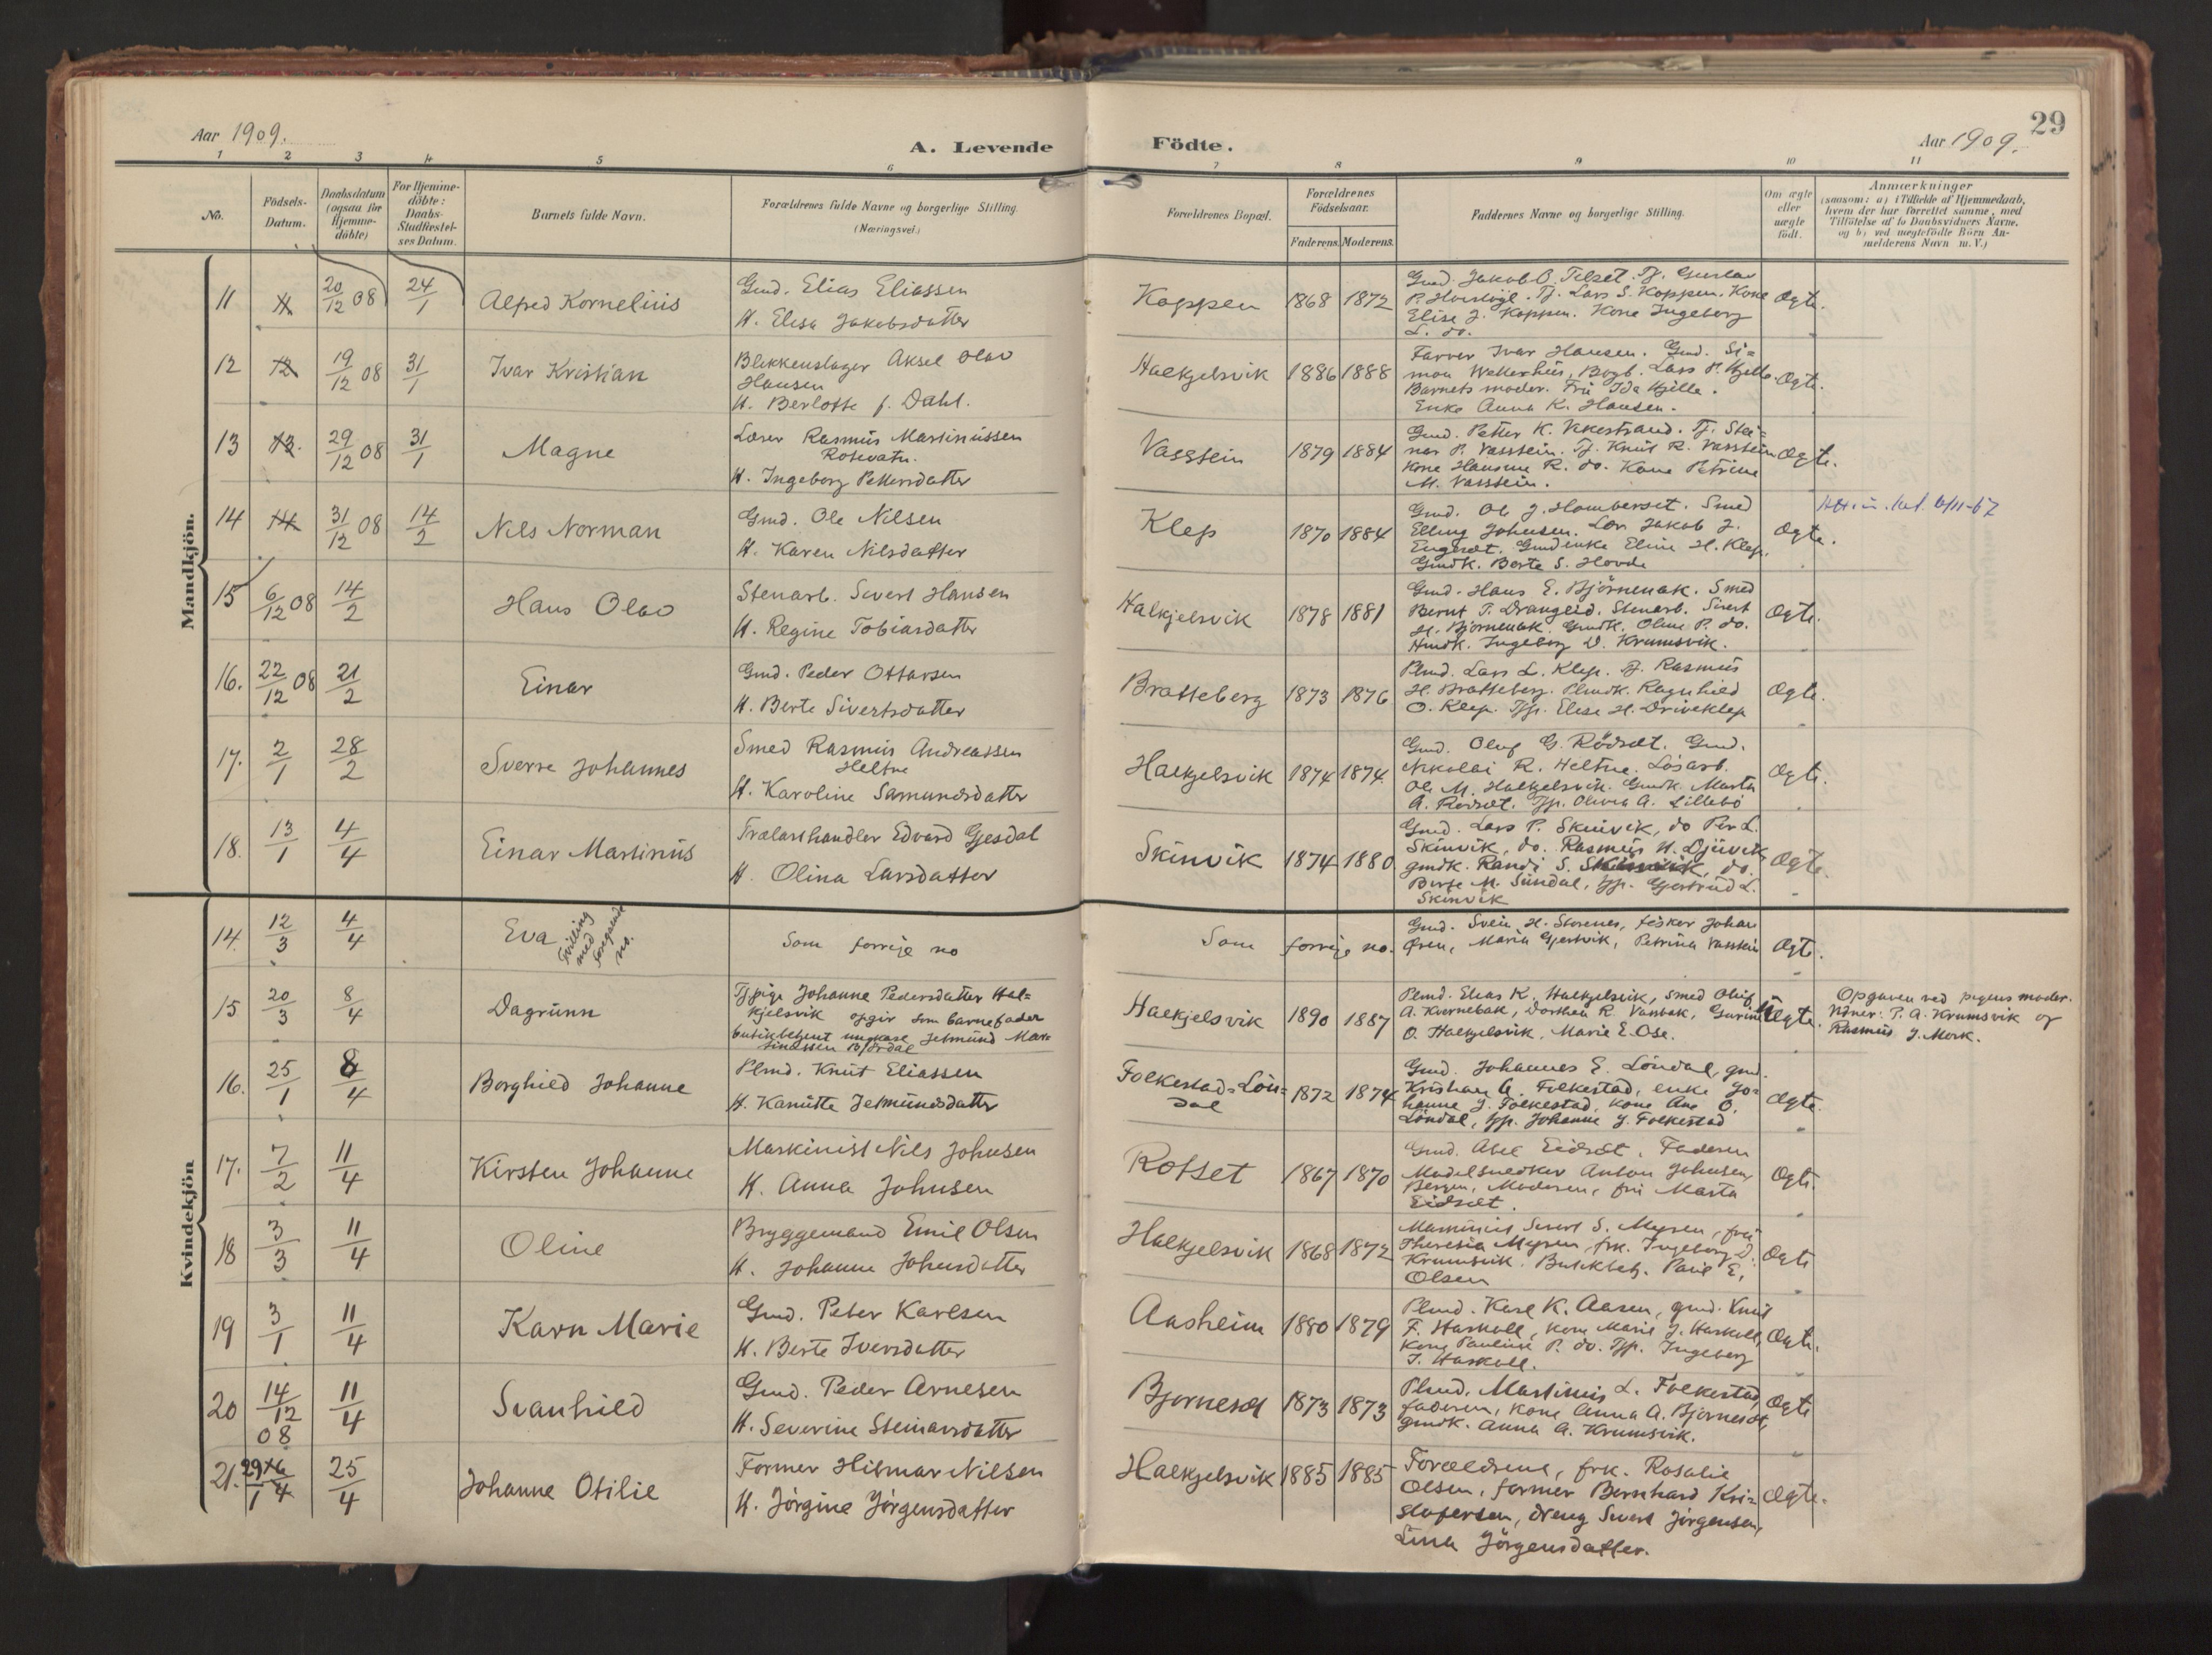 29
Aar 1909.
A. Levende
Födte.
Aar 1909.
1 2 3 4 5 6 7 8 9 10 11
No.
Födsels-
Datum.
Daabsdatum
(ogsaa for
Hjemme-
döbte)
For Hjemme-
döbte:
Daabs-
Stadfæstel-
ses Datum.
Barnets fulde Navn.
Forældrenes fulde Navne og borgerlige Stilling.
(Næringsvei.)
Forældrenes Bopæl.
Forældrenes
Födselsaar.
Faderens. Moderens.
Faddernes Navne og borgerlige Stilling.
Om ægte
eller
uægte
födt.
Anmærkninger
(saasom: a) i Tilfælde af Hjemmedaab,
hvem der har forrettet samme, med
Tilföielse af to Daabsvidners Navne,
og b) ved uægtefödte Börn An-
melderens Navn m. V.)
Mandkjön.
11 11 20/12 08 24/1 Alfred Kornelius
Gmd. Elias Eliassen
H. Elisa Jakobsdatter
Koppen 1868 1872
Gmd. Jakob O. Tj. Gustav
P. Tj. Lars S. Koppen. Kone
Elise J. Koppen. Kone Ingeborg
L. do.
Ægte.
12 12 19/12 08 31/1 Ivar Kristian
Blikkenslager Aksel Olav
Hansen
H. Berlotte f. Dahl.
Halkjelsvik 1886 1888
Farver Ivar Hansen. Gmd. Si=
mon Welkerhus, Bogb. Lars P. Hjelle.
Barnets moder. Fru Ida Hjelle.
Enke Anna K. Hansen.
Ægte.
13 13. 29/12 08 31/1 Magne
Lærer Rasmus Martinussen
Rotevatn.
H. Ingeborg Pettersdatter
Vasstein 1879 1884
Gmd. Petter K. Vikestrand. Tj. Stei=
nar P. Vasstein. Tj. Knut R. Vasstein
Kone Hansine R. do. Kone Petrine
M. Vasstein.
Ægte.
14 14 31/12 08 14/2 Nils Norman
Gmd. Ole Nilsen
H. Karen Nilsdatter
Klep 1870 1884
Gmd. Ol J. Homberset. Smed
Elling Johnsen. Lær Jakob J.
Engeset. Gmdenke Eline H. Klep.
Gmdk. Berte S. Hovde
Ægte.
15 6/12 08 14/2 Hans Olav
Stenarb. Sivert Hansen
H. Regine Tobiasdatter
Halkjelsvik 1878 1881
Gmd. Hans E. Björnenak. Smed
Bernt T. Drangeid. Stenarb. Sivert
H. Bjørnenak. Gmdk. Oline P. do.
Hmdk. Ingeborg D. Krumsvik.
Ægte.
16. 22/12 08 21/2 Einar
Gmd. Peder Ottarsen
H. Berte Sivertsdatter
Bratteberg 1873 1876
Plmd. Lars L. Klep. Tj. Rasmus
H. Bratteberg. Plmdk. Ragnhild
O. Klep. Tjp. Elise H. Driveklep
Ægte.
17. 2/1 28/2 Sverre Johannes
Smed Rasmus Andreassen
Heltne
H. Karoline Samundsdatter
Halkjelsvik 1874 1874.
Gmd. Oluf G. Rödset. Gmd.
Nikolai R. Heltne. Løsarb.
Ole M. Halkjelsvik. Gmdk. Marta
A. Rødset. Tjp. Olivia A. Lillebö
Ægte.
18. 13/1 4/4 Einar Martinus
Trælasthandler Edvard Gjesdal
H. Olina Larsdatter
Skinvik 1874 1880
Gmd. Lars P. Skinvik, do Per L.
Skinvik, do. Rasmus H. Djuvik
gmdk. Randi S. Skinvik, do.
Berte M. Sundal, tjp. Gjertrud L.
Skinvik
Ægte.
Kvindekjön
14. 12/3 4/4 Eva Tvilling
med
foregaaende
no.
Som forrige no
Som forrige no.
Gmd. Svein H. Storenes, fisker Johan
Øren, Maria Gjertvik, Petrina Vasstein
Ægt.
15 20/3 8/4 Dagrunn
Tjpige Johanne Pedersdatter Hal=
kjelsvik opgir som barnefader
butikbetjent ungkarl Jetmund Mar=
tinussen Bjørdal
Halkjelsvik 1890 1887
Plmd. Elias K. Halkjelsvik, smed Oluf
A. Kvernebak, Dorthea R. Vanbak, Gurine
O. Halkjelsvik, Marie E. Ose.
Uægte.
Opgaven ved pigens moder.
Vidner: P. A. Krumsvik og
Rasmus J. Mork.
16. 25/1 8/4 Borghild Johanne
Plmd. Knut Eliassen
H. Kanutte Jetmundsdatter
Folkestad=Løn=
dal 1872 1874
Gmd. Johannes E. Löndal, gmd.
Kristian G. Folkestad, enke Jo=
hanne J. Folkestad, kone Ane O.
Löndal, tjp. Johanne J. Folkestad
Ægte.
17. 7/2 11/4 Kirsten Johanne
Maskinist Nils Johnsen
H. Anna Johnsen
Rotset 1867 1870
Gmd. Abel Eidset, Faderen
Modelsnedker Anton Johnsen,
Bergen, Moderen, fru Marta
Eidset.
Ægte.
18 3/3 11/4 Oline
Bryggemand Emil Olsen
H. Johanne Johnsdatter
Halkjelsvik 1868 1872
Maskinist Sivert S. Myren, fru
Theresia Myren, frk. Ingeborg D.
Krumsvik. Butikbetj. Paul E.
Olsen
Ægte
19 3/1 11/4 Karn Marie
Gmd. Peter Karlsen
H. Berte Iversdatter
Aasheim 1880 1879
Plmd. Karl K. Aasen, gmd. Knut
F. Haskoll, kone Marie J. Haskoll,
Kone Pauline P. do. Tjp. Ingeborg
I. Haskoll.
Ægte.
20 14/12 08 11/4 Svanhild
Gmd. Peder Arnesen
H. Severine Steinarsdatter
Bjørneset 1873 1873
Plmd. Martinus L. Folkestad,
faderen, kone Anna A. Bjørneset,
gmdk. Anna A. Krumsvik.
Ægte
21. 29/1 25/4 Johanne Otilie
Former Hilmar Nilsen
H. Jørgine Jørgensdatter
Halkjelsvik 1885 1885
Forældrene, frk. Rosalie
Olsen, former Bernhard Kri=
stofersen, dreng Sivert Jørgensen,
Lina Jörgensdatter.
Ægte.